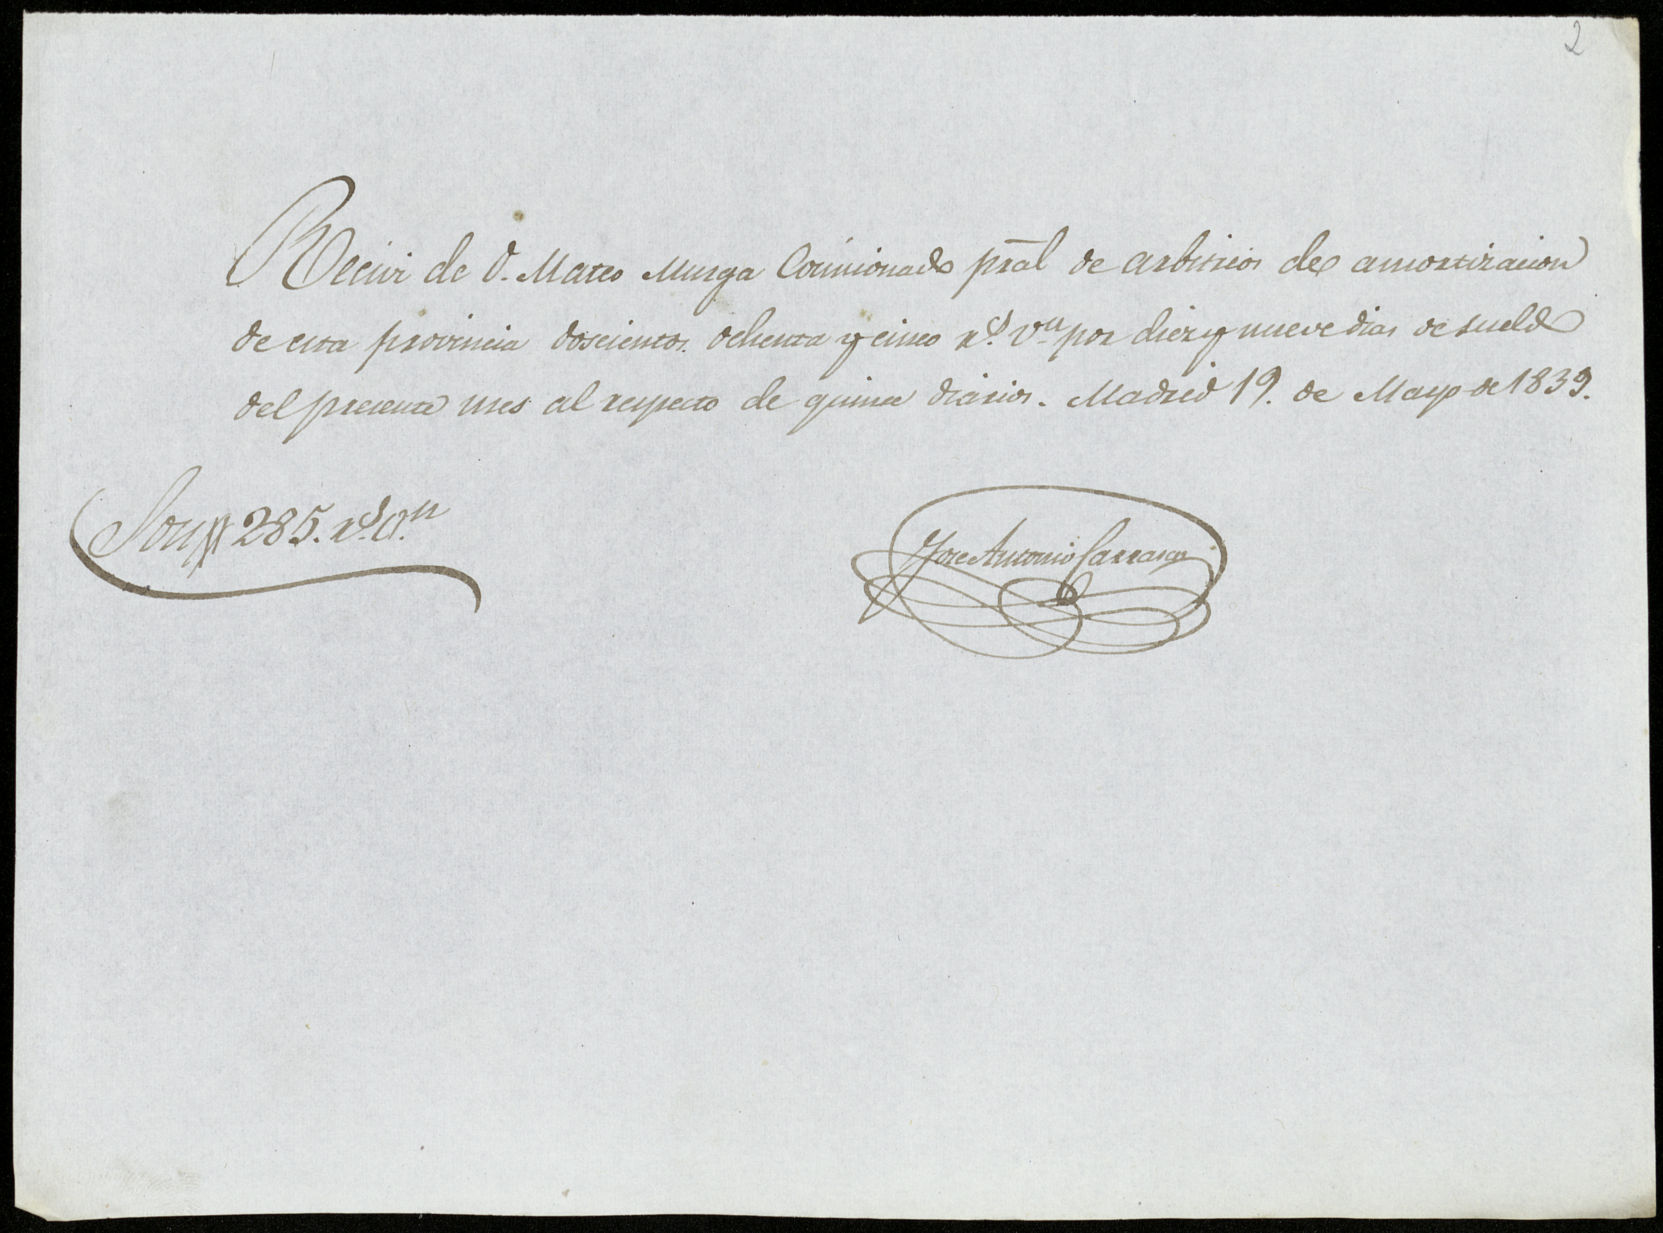 2
Recivi de D. Mateo Murga Comisionado pral de arbitrios de amortizacion
de esta provincia doscientos ochenta y cinco rs. vn. por diez y nueve dias de sueldo
del precente mes al respecto de quince diarios. Madrid 19. de Mayo de 1839.
Son 285. rs. vn.
Jose Antonio Carrasco